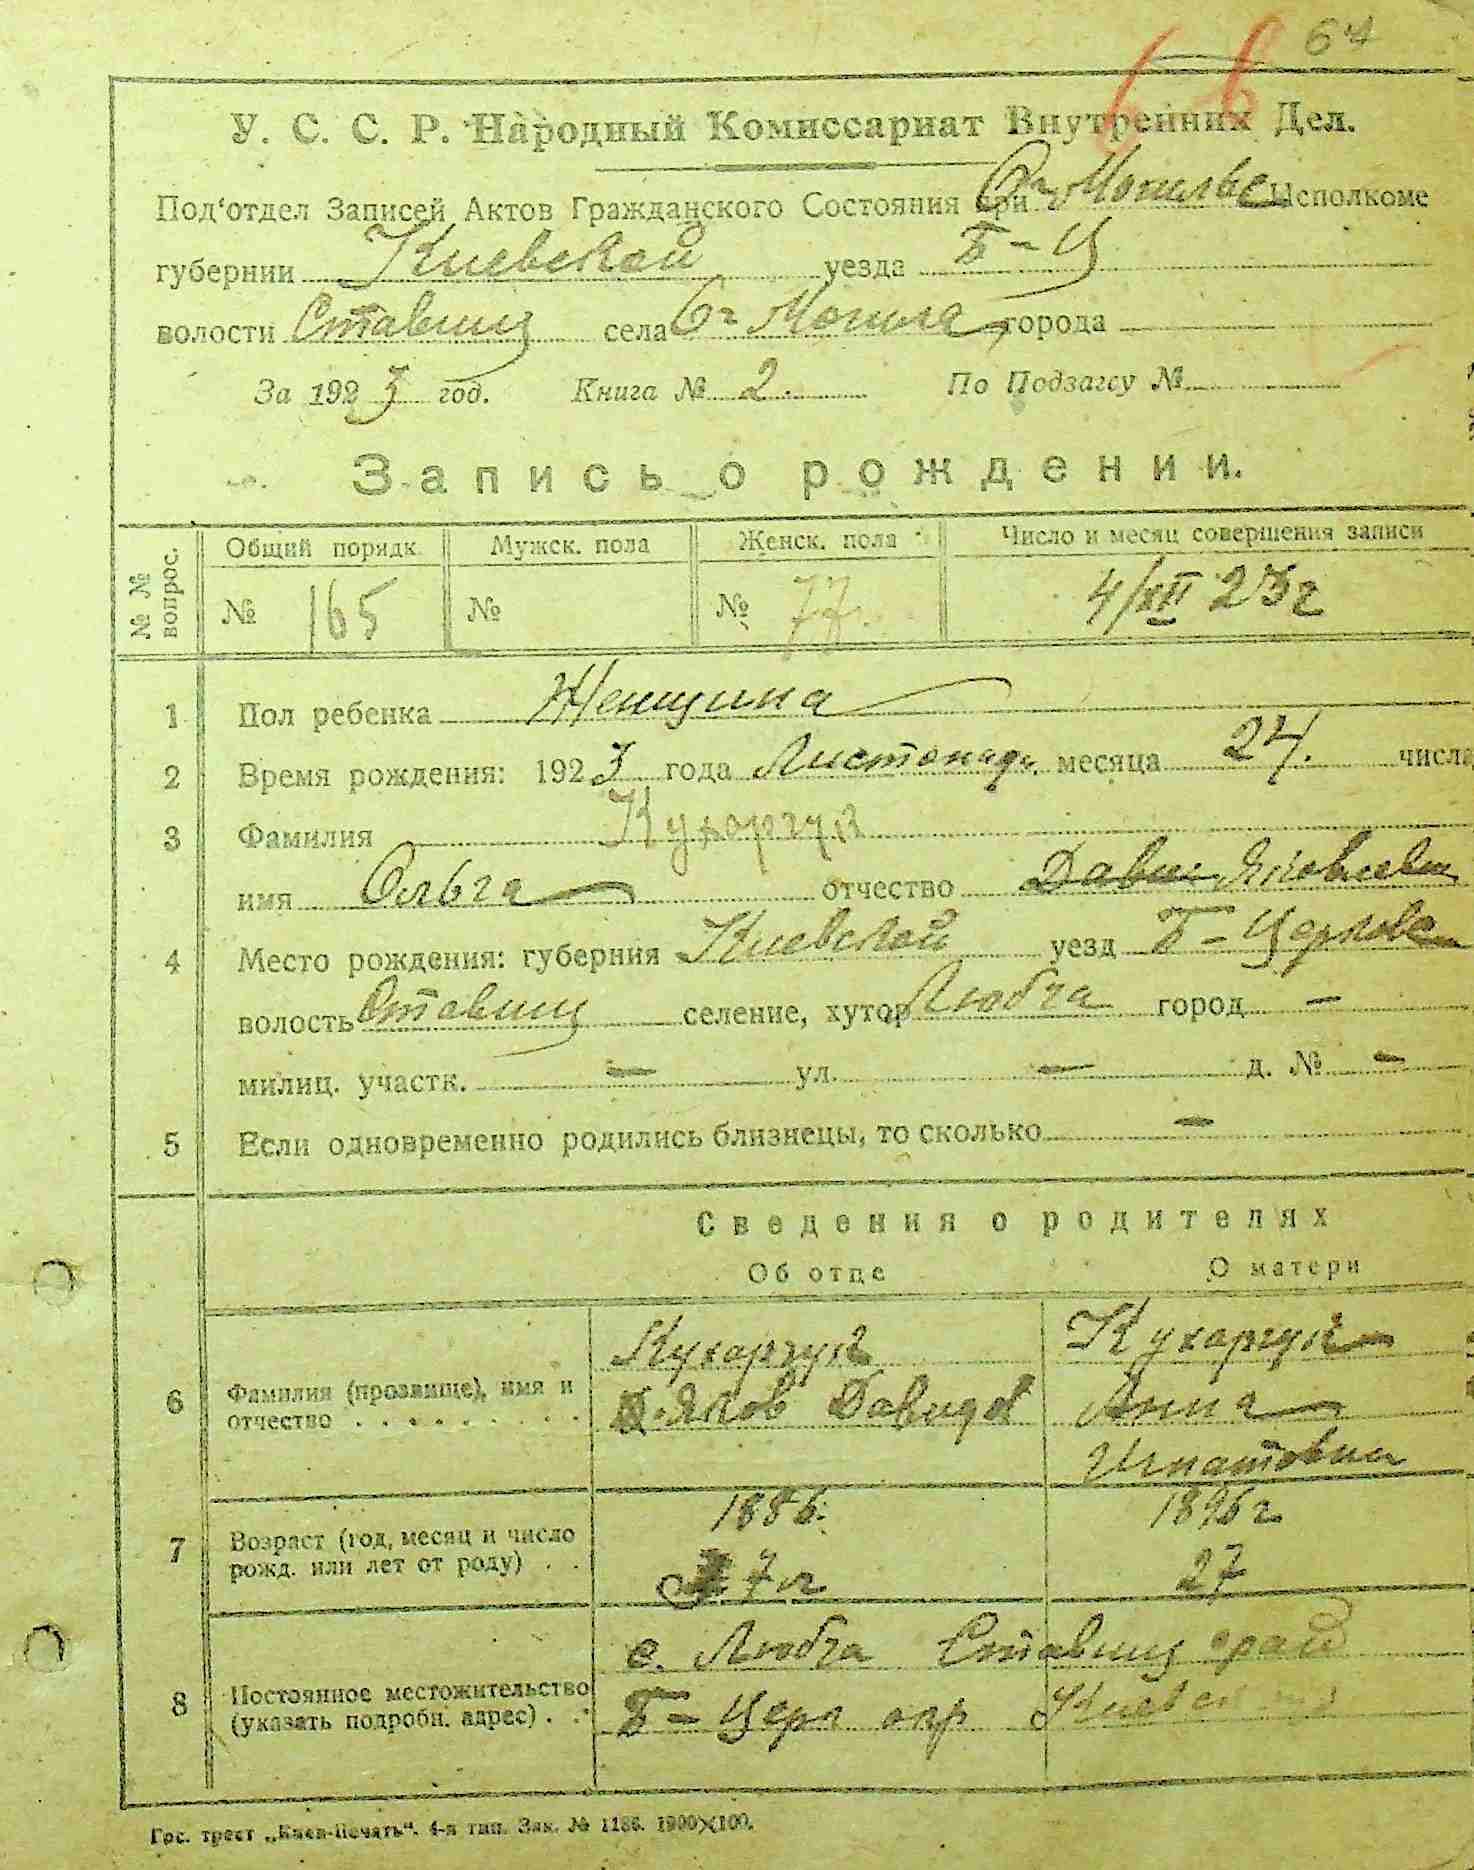 64
66
У. С. С. Р. Народный Комиссариат Внутренних Дел.
Под'отдел Записей Актов Гражданского Состояния при Ст Могильс Исполкоме
губернии Киевской уезда Б-Ц
волости Ставищ села Ст Могила города
За 1923 год. Книга № 2. По Подзагсу №
Запись о рождении.
№ № вопрос. Общий порядк. Мужск. пола Женск. пола Число и месяц совершения записи
№ 165 № № 77. 4/XII 23 г
1 Пол ребенка Женщина
2 Время рождения: 1923 года Листопада месяца 24. числа
3 Фамилия Кухарчук
имя Ольга отчество Яковлевн
4 Место рождения: губерния Киевской уезд Б-Церков
волость Ставищ селение, хутор Любча город –
милиц. участк. – ул. – д. № –
5 Если одновременно родились близнецы, то сколько –
Сведения о родителях
Об отце О матери
6 Фамилия (прозвище), имя и отчество
Кухарчук Кухарчук
Яков Давидов Анна
Игнатовна
7 Возраст (год, месяц и число рожд. или лет от роду)
1886. 1896 г
37 г 27
8 Постоянное местожительство (указать подробн. адрес)
с. Любча Ставищ край
Б-Церк окр Киевск
Гос. трест „Киев-Печать". 4-я тип. Зак. № 1186. 1900×100.